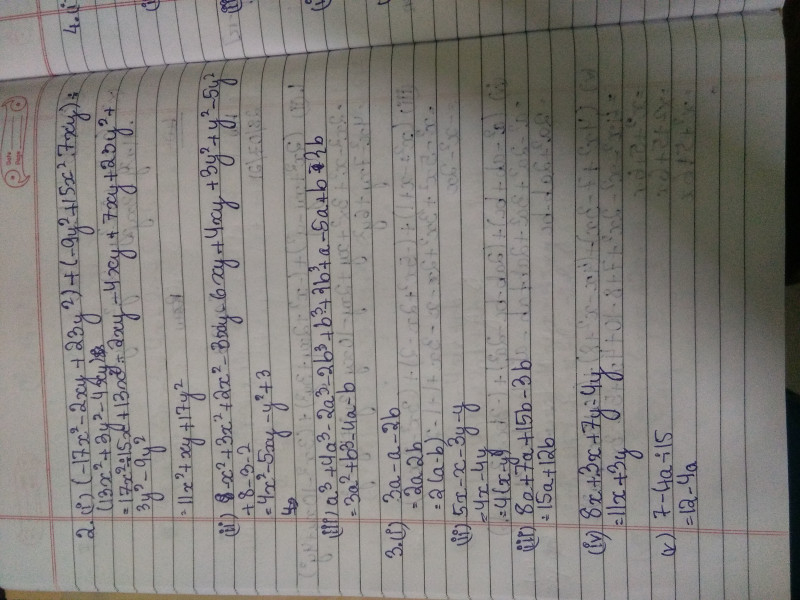 2. (i) (-17x² - 2xy + 23y²) + (-9y² + 15x² 7xy) +
(13x² + 3y² - 4xy)
= 17x² + 15x² + 13x² - 2xy - 4xy + 7xy + 23y² +
3y² - 9y²
= 11x² + xy + 17y²
(ii) -x² + 3x² + 2x² - 3xy - 6xy + 4xy + 3y² + y² - 5y²
+ 8 - 3 - 2
= 4x² - 5xy - y² + 3
(iii) a³ + 4a³ - 2a³ - 2b³ + b³ + 2b³ + a - 5a + b + 3b
= 3a² + b³ - 4a - b
3. (i) 3a - a - 2b
= 2a - 2b
= 2(a - b)
(ii) 5x - x - 3y - y
= 4x - 4y
= 4(x - y)
(iii) 8a + 7a + 15b - 3b
= 15a + 12b
(iv) 8x + 3x + 7y - 4y
= 11x + 3y
(v) 7 - 4a 15
= 12 - 4a
4. (i)